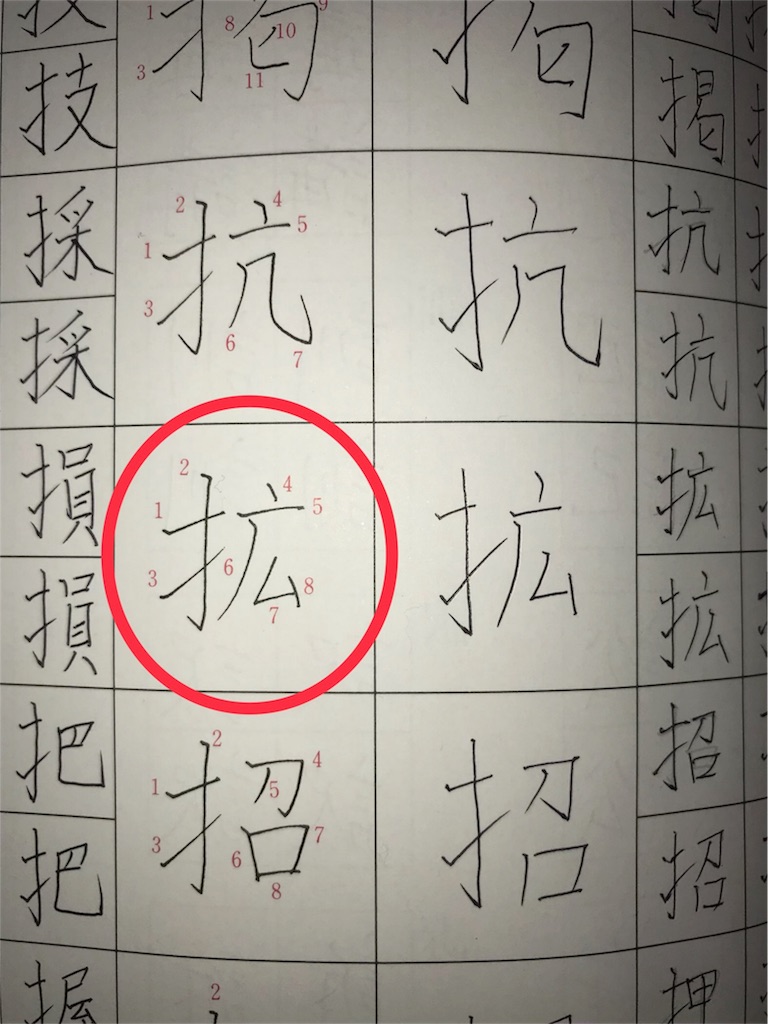 技
技
採
採
損
損
把
把
握
1 3 8 9 10 11
抗 1 2 3 4 5 6 7
拡 1 2 3 4 5 6 7 8
招 1 2 3 4 5 6 7 8
2
抗
拡
招
掲
抗
抗
拡
拡
招
招
押